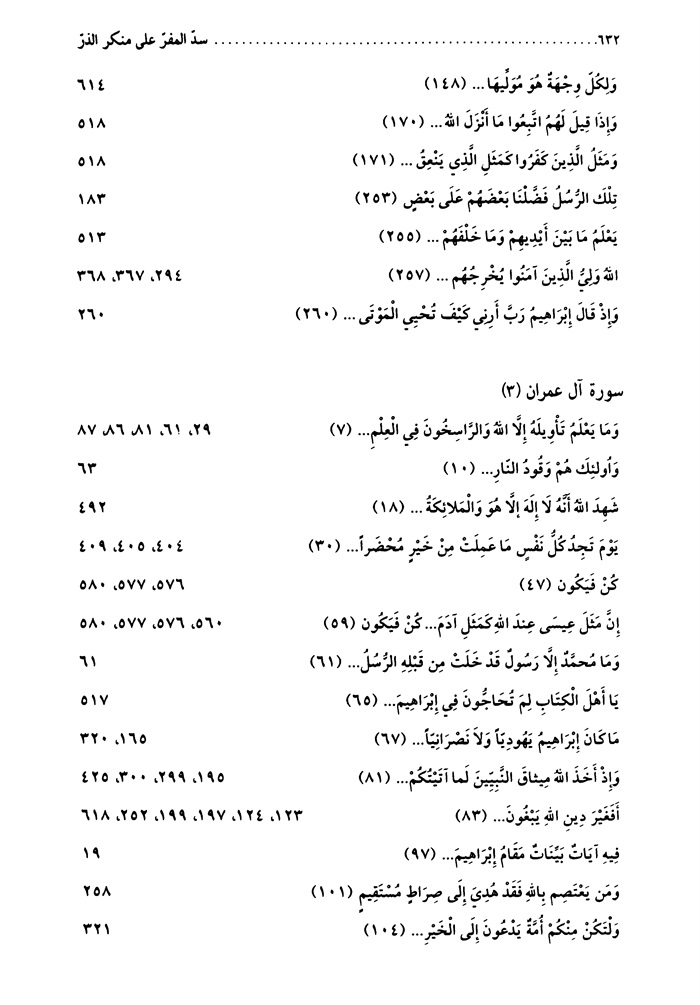 ٦٣٢ ........................................................ سدّ المفرّ على منكر الذرّ
وَلِكُلّ وِجْهَةٌ هُوَ مُوَلِّيهَا... (١٤٨) ٦١٤
وَإِذَا قِيلَ لَهُمُ اتَّبِعُوا مَا أَنْزَلَ اللهُ... (١٧٠) ٥١٨
وَمَثَلُ الَّذِينَ كَفَرُوا كَمَثَلِ الَّذِي يَنْعِقُ ... (١٧١) ٥١٨
تِلْكَ الرُّسُلُ فَضَّلْنَا بَعْضَهُمْ عَلَى بَعْضٍ (٢٥٣) ١٨٣
يَعْلَمُ مَا بَيْنَ أَيْدِيهِمْ وَمَا خَلْفَهُمْ ... (٢٥٥) ٥١٣
اللهُ وَلِيُّ الَّذِينَ آمَنُوا يُخْرِجُهُم ... (٢٥٧) ٢٩٤، ٣٦٧، ٣٦٨
وَإِذْ قَالَ إِبْرَاهِيمُ رَبَّ أَرِنِي كَيْفَ تُحْيِي الْمَوْتَى ... (٢٦٠) ٢٦٠
سورة آل عمران (٣)
وَمَا يَعْلَمُ تَأْوِيلَهُ إِلَّا اللهُ وَالرَّاسِخُونَ فِي الْعِلْمِ... (٧) ٢٩، ٦١، ٨١، ٨٦، ٨٧
وَأُولئِكَ هُمْ وَقُودُ النّارِ... (١٠) ٦٣
شَهِدَ اللهُ أَنَّهُ لَا إِلَهَ إِلَّا هُوَ وَالْمَلائِكَةُ ... (١٨) ٤٩٢
يَوْمَ تَجِدُ كُلُّ نَفْسٍ مَا عَمِلَتْ مِنْ خَيْرٍ مُحْضَراً... (٣٠) ٤٠٤، ٤٠٥، ٤٠٩
كُنْ فَيَكُون (٤٧) ٥٧٦، ٥٧٧، ٥٨٠
إِنَّ مَثَلَ عِيسَى عِندَ اللهِ كَمَثَلِ آدَمَ... كُنْ فَيَكُون (٥٩) ٥٦٠، ٥٧٦، ٥٧٧، ٥٨٠
وَمَا مُحمَّدٌ إِلَّا رَسُولٌ قَدْ خَلَتْ مِن قَبْلِهِ الرُّسُلُ... (٦١) ٦١
يَا أَهْلَ الْكِتَابِ لِمَ تُحَاجُّونَ فِي إِبْرَاهِيمَ... (٦٥) ٥١٧
مَا كَانَ إِبْرَاهِيمُ يَهُودِيّاً وَلاَ نَصْرَانِيّاً... (٦٧) ١٦٥، ٣٢٠
وَإِذْ أَخَذَ اللهُ مِيثاقَ النَّبِيِّينَ لَما آتَيْتُكُمْ... (٨١) ١٩٥، ٢٩٩، ٣٠٠، ٤٢٥
أَفَغَيْرَ دِينِ اللهِ يَبْغُونَ... (٨٣) ١٢٣، ١٢٤، ١٩٧، ١٩٩، ٢٥٢، ٦١٨
فِيهِ آيَاتٌ بَيِّنَاتٌ مَقَامُ إِبْرَاهِيمَ... (٩٧) ١٩
وَمَن يَعْتَصِم بِاللهِ فَقَدْ هُدِيَ إِلَى صِرَاطٍ مُسْتَقِيمٍ (١٠١) ٢٥٨
وَلْتَكُنْ مِنْكُمْ أُمَّةٌ يَدْعُونَ إِلَى الْخَيْرِ... (١٠٤) ٣٢١